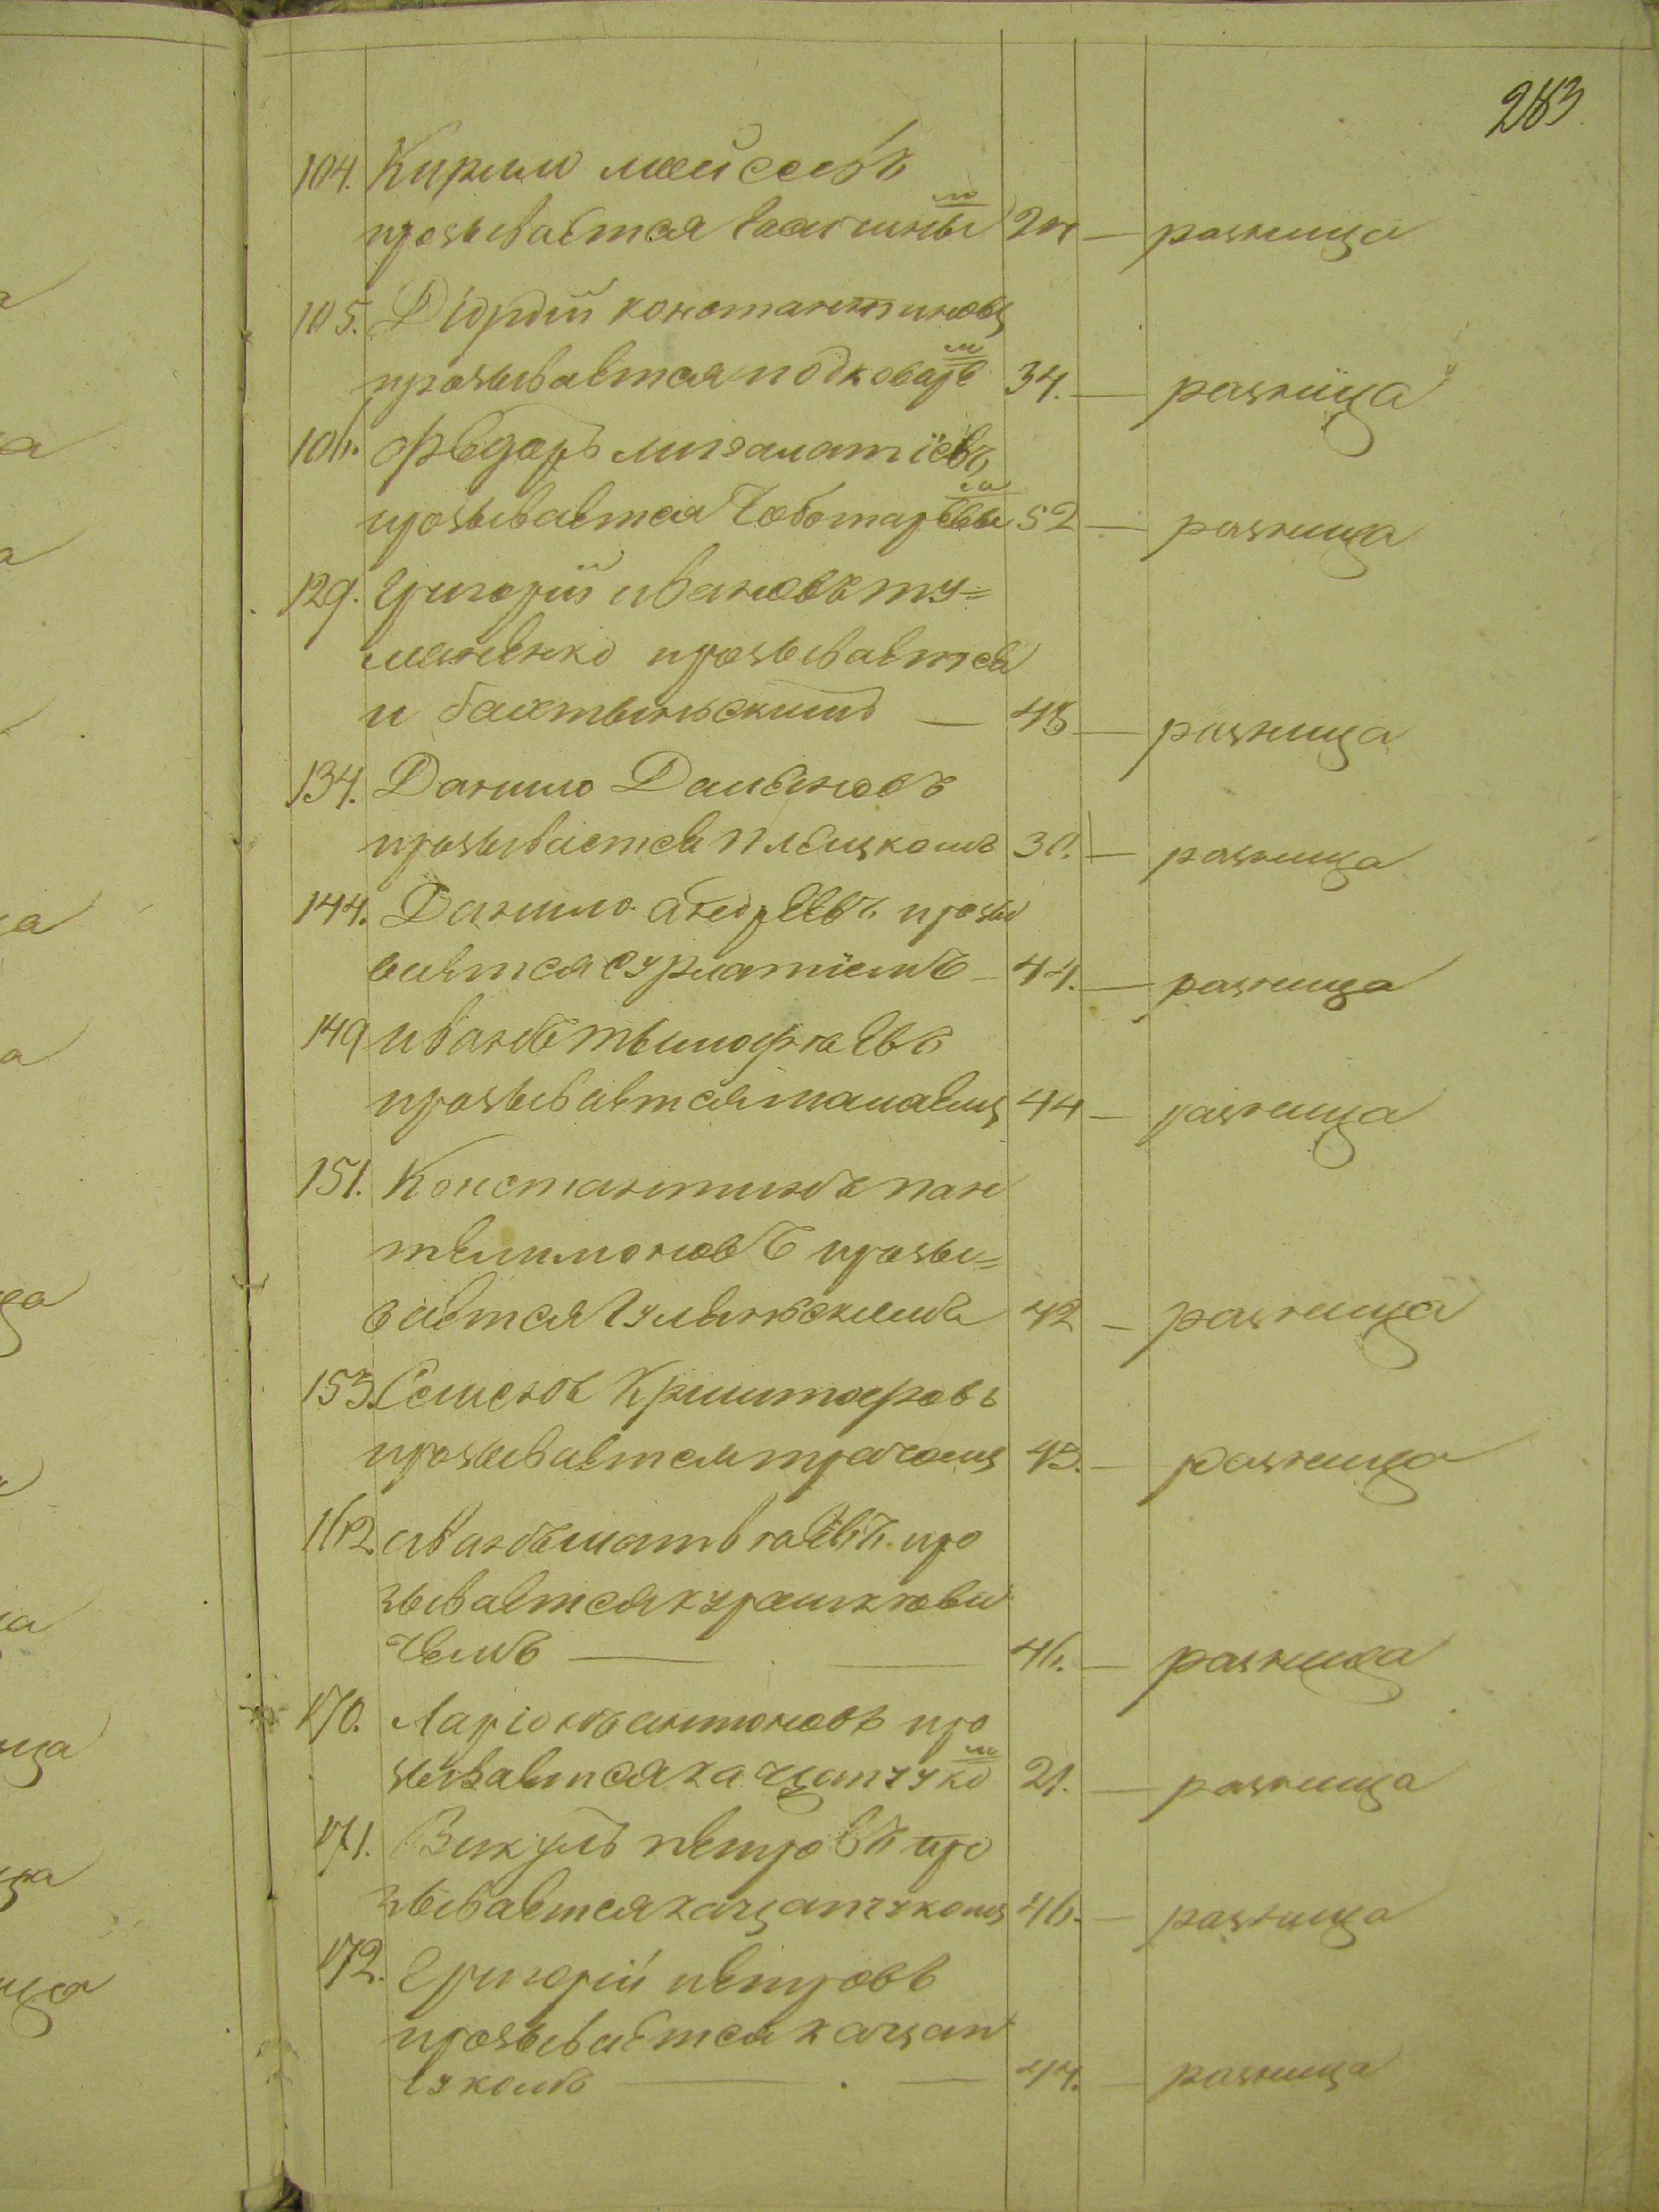 283
104. Кирило мойсеевъ
прозывается 2 — разница
105. Діордій константиновъ
прозывается подковаремъ 34. — разница
106. Фѣдоръ
прозывается Чоботаревымъ 52 — разница
129. Григорій ивановъ ту=
маненко прозывается
и бахтынскимъ — 45 — разница
134. Данило Даміановъ
прозывается 30. — разница
144. Данило андреевъ прозы
вается 44. — разница
149 иванъ тымофѣевъ
прозывается 44 — разница
151. Константинъ пан
телимоновъ прозы=
вается Гулянскимъ 42 — разница
153. Семенъ Криштофовъ
прозывается ткачомъ 43. — разница
162. иванъ матвѣевъ про
зывается
чемъ — 46. — разница
170. Ларіонъ антоновъ про
зывается кацапчукомъ 21. — разница
171. Викулъ петровъ про
зывается кацапчукомъ 46. — разница
172. Григорій петровъ
прозывается кацап
чукомъ — 44. — разница